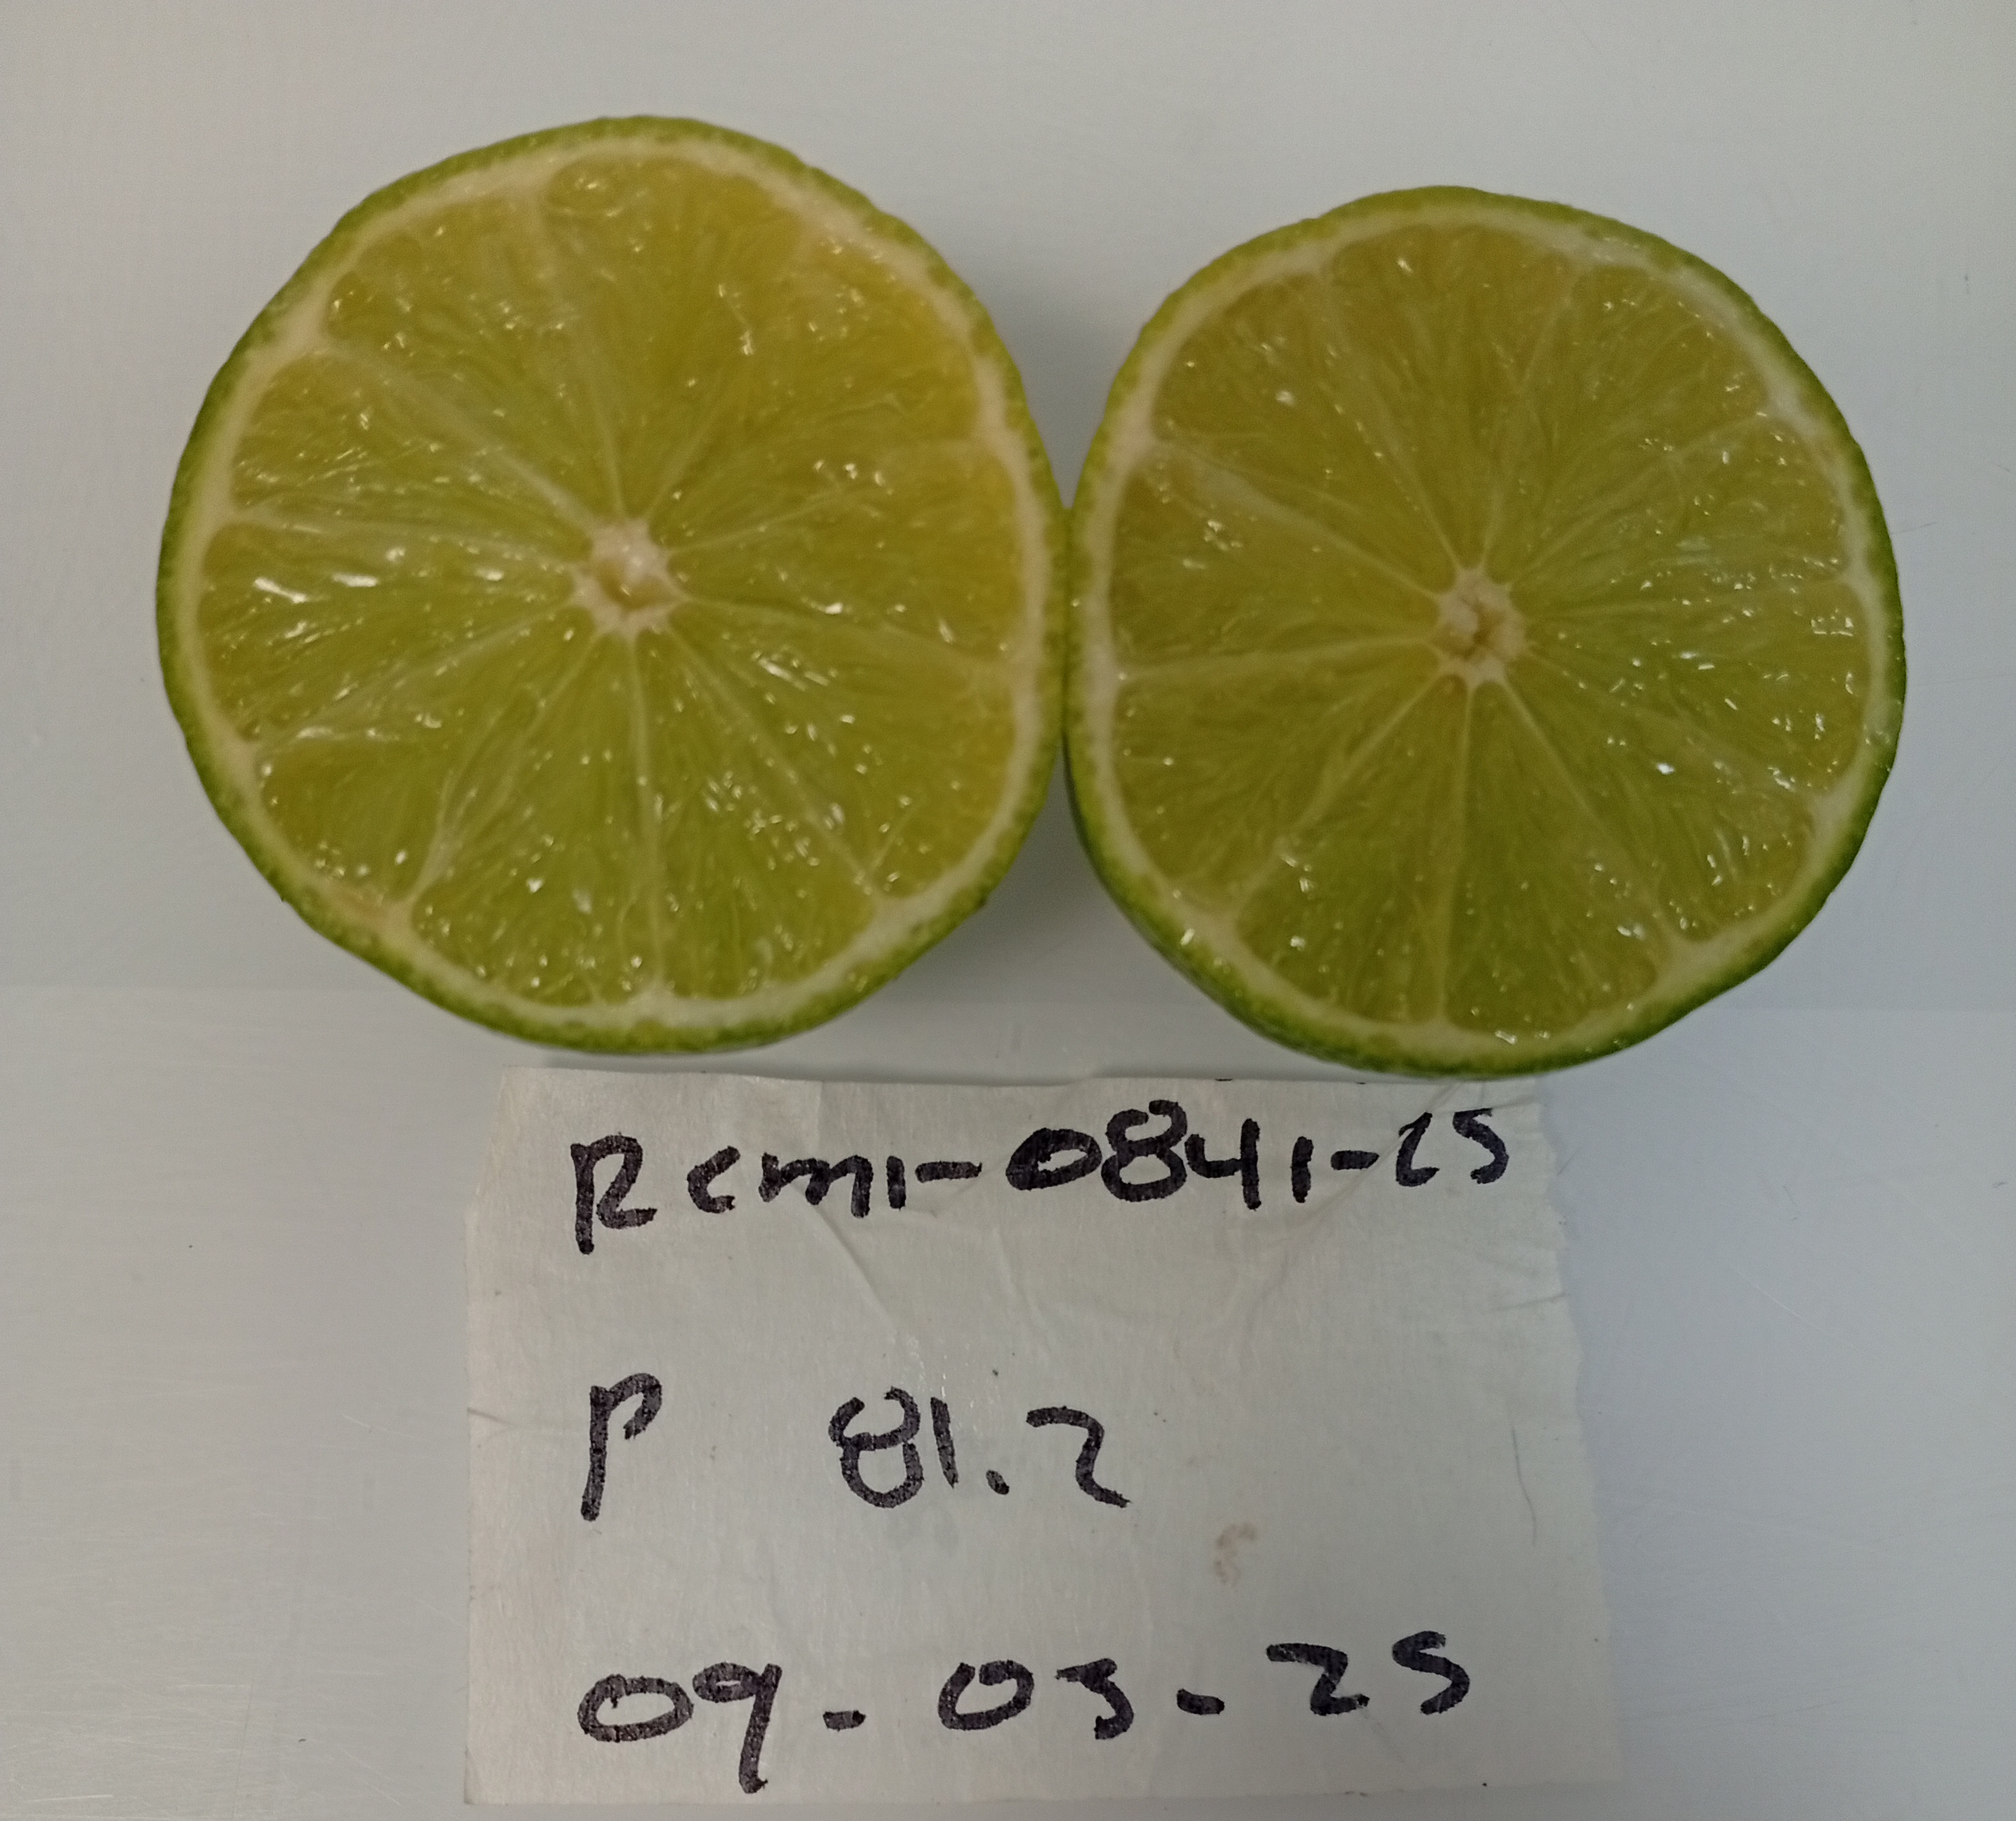 Rcmi-0841-25
P 81.2
09-03-25